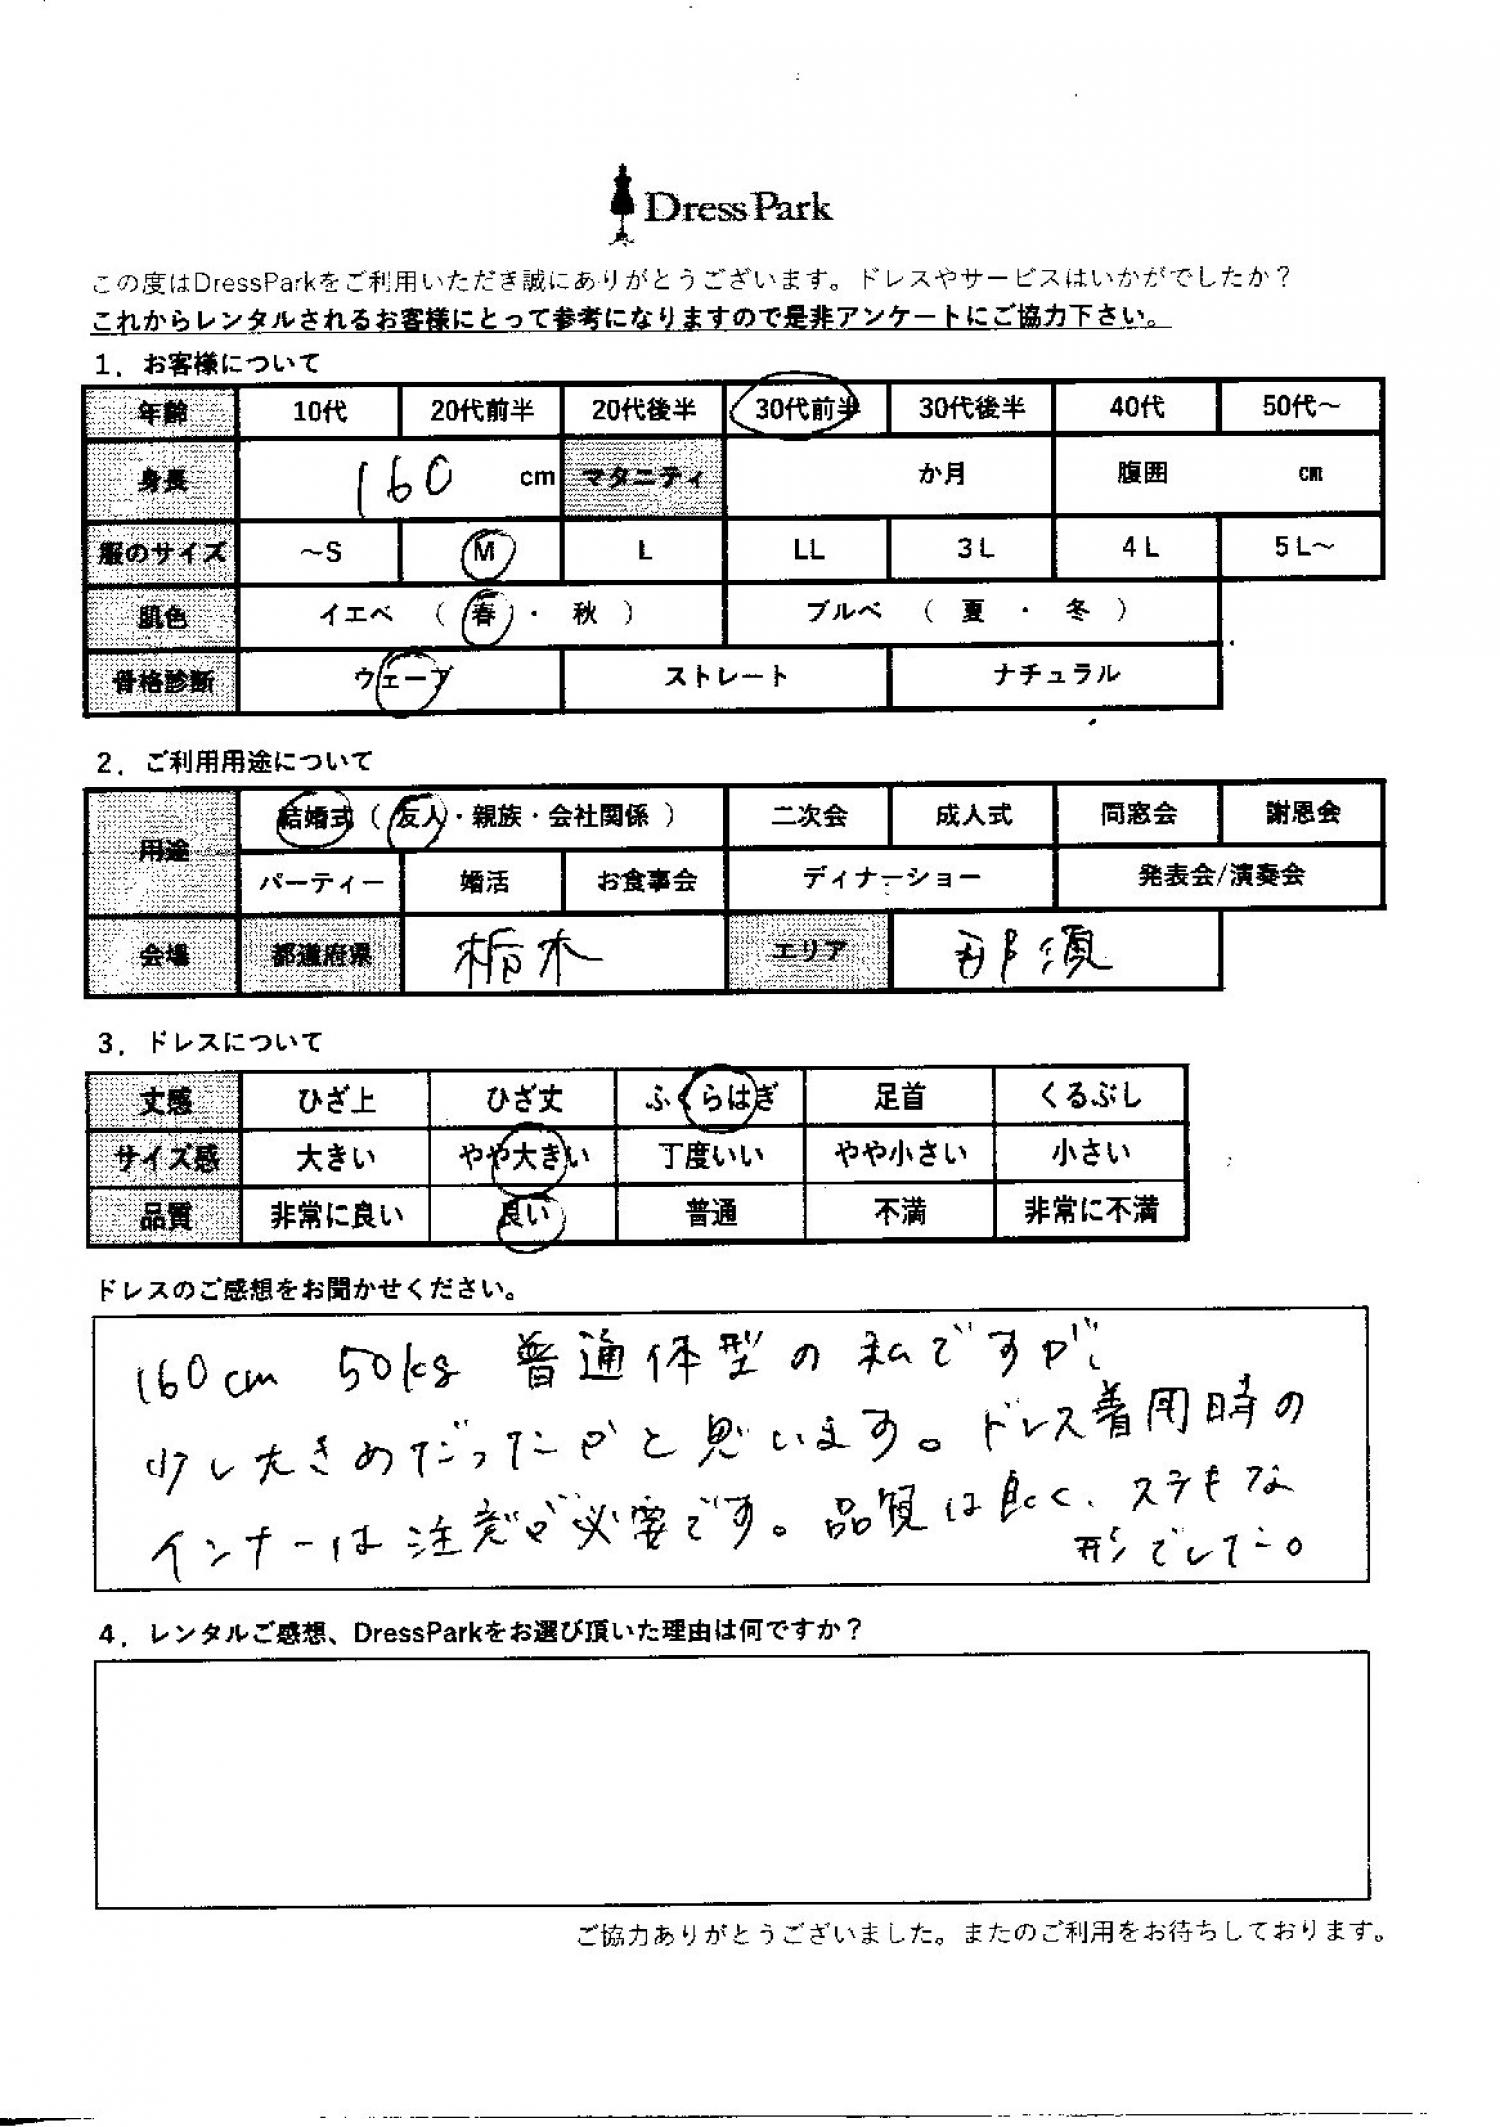 DressPark
この度はDressParkをご利用いただき誠にありがとうございます。ドレスやサービスはいかがでしたか？
これからレンタルされるお客様にとって参考になりますので是非アンケートにご協力下さい。
1．お客様について
年齢 10代 20代前半 20代後半 30代前半 30代後半 40代 50代～
身長 160 cm マタニティ か月 腹囲 cm
服のサイズ ～S M L LL 3L 4L 5L～
肌色 イエベ （ 春 ・ 秋 ） ブルベ （ 夏 ・ 冬 ）
骨格診断 ウェーブ ストレート ナチュラル
2．ご利用用途について
用途 結婚式（ 友人・親族・会社関係 ） 二次会 成人式 同窓会 謝恩会
パーティー 婚活 お食事会 ディナーショー 発表会/演奏会
会場 都道府県 栃木 エリア 那須
3．ドレスについて
丈感 ひざ上 ひざ丈 ふくらはぎ 足首 くるぶし
サイズ感 大きい やや大きい 丁度いい やや小さい 小さい
品質 非常に良い 良い 普通 不満 非常に不満
ドレスのご感想をお聞かせください。
160cm 50kg 普通体型の私ですが、
少し大きめだったかと思います。ドレス着用時の
インナーは注意が必要です。品質は良く、ステキな
形でした。
4．レンタルご感想、DressParkをお選び頂いた理由は何ですか？
ご協力ありがとうございました。またのご利用をお待ちしております。